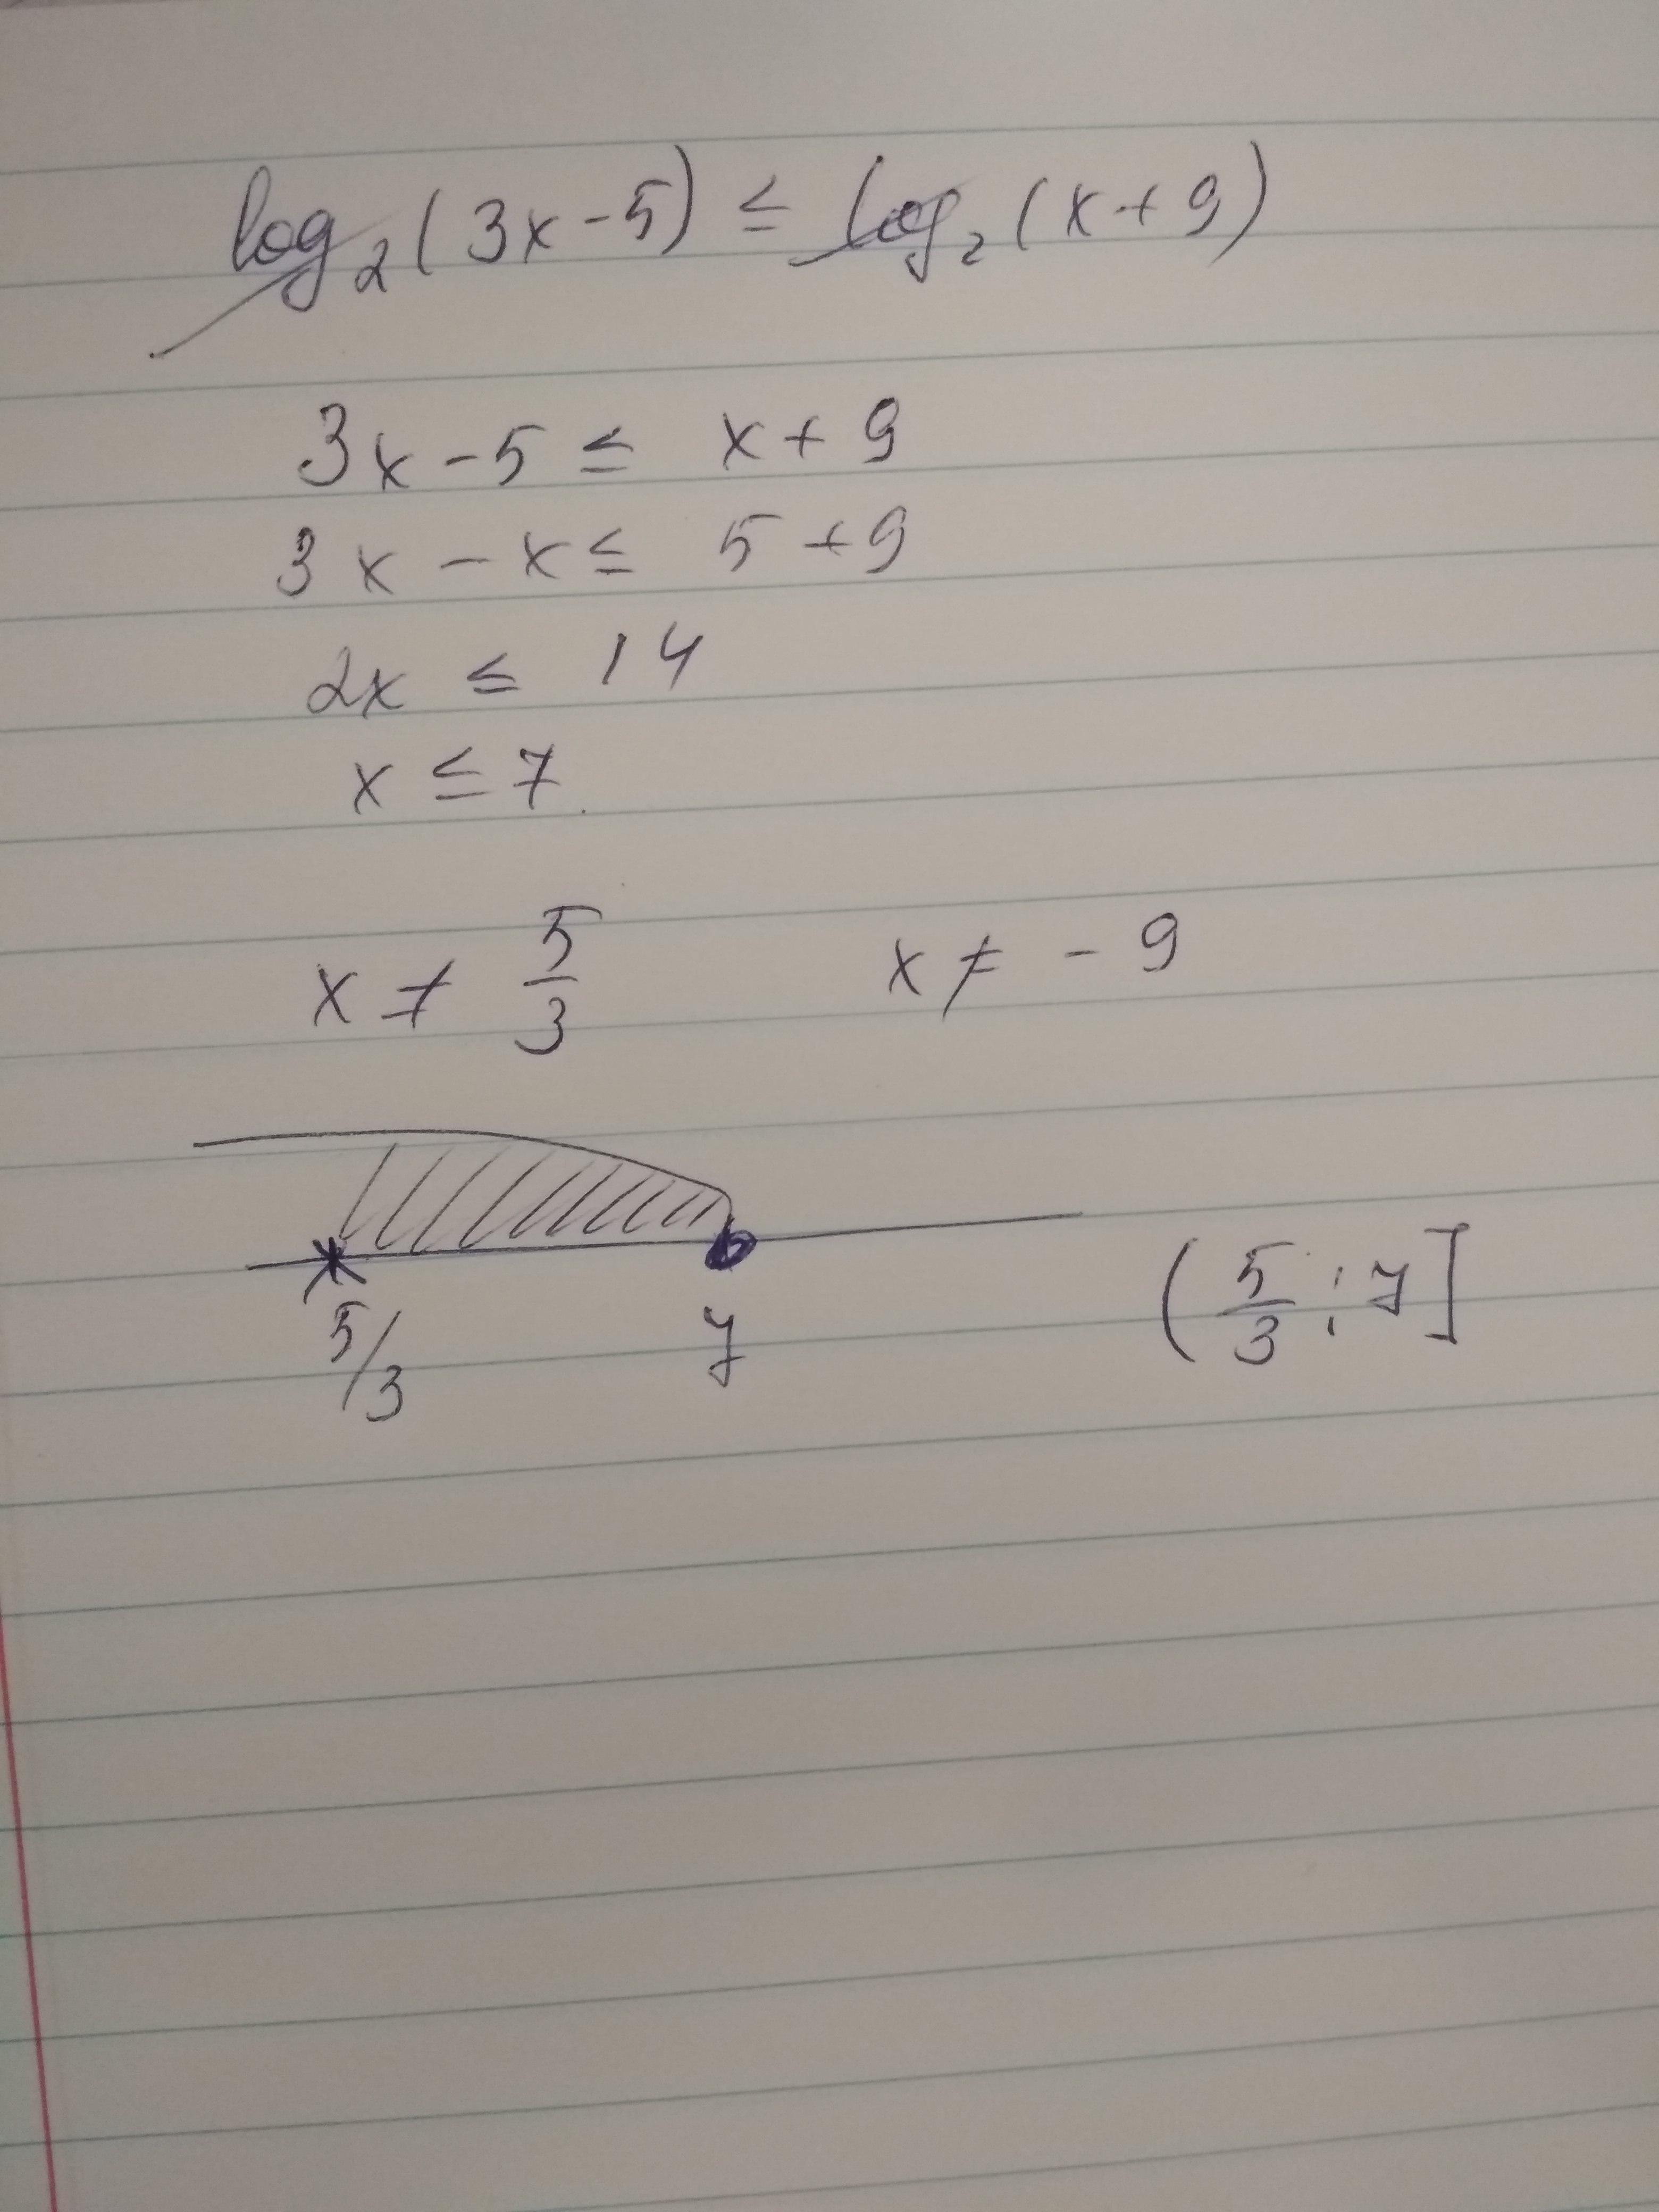 log₂(3x-5) ≤ log₂(x+9)
3x-5 ≤ x+9
3x-x ≤ 5+9
2x ≤ 14
x ≤ 7
x ≠ 5/3 x ≠ -9
5/3 7 (5/3; 7]